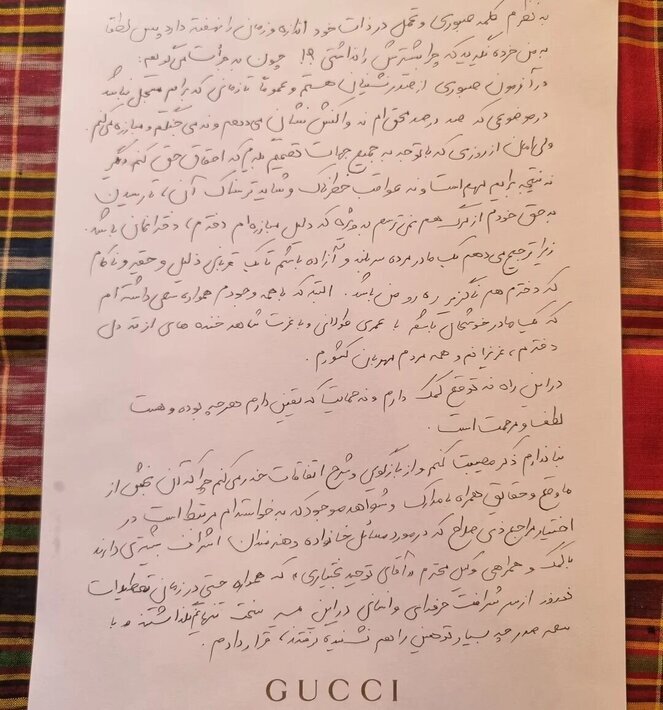 به نظرم کلمه صبوری و تحمل در ذات خود اندازه و زمانی را نهفته دارد پس لطفا
به من خرده نگیرید که چرا بیشترش را نداشتی ؟! چون به جرأت می‌گویم:
در آزمون صبوری از صدرنشینان هستم و عموماً تا زمانی که برایم مسجل نباشد
در موضوعی که صد در صد محق‌ام نه واکنش نشان می‌دهم و نه می‌جنگم و مبارزه می‌کنم
ولی امان از روزی که با توجه به جمیع جهات تصمیم بگیرم که احقاق حق کنم دیگر
نه نتیجه برایم مهم است و نه عواقب خطرناک و شاید ترسناک آن، تا رسیدن
به حق خودم از مرگ هم نمی‌ترسم به ویژه که دلیل مبارزه‌ام دخترم، دخترانمان باشد.
زیرا ترجیح می‌دهم یک مادر مرده سربلند و آزاده باشم تا یک قربانی ذلیل و حقیر و ناکام
که دخترم هم ناگزیر ره رو من باشد. البته که با همه وجودم همواره سعی داشته‌ام
که یک مادر خوشحال باشم با عمری طولانی و با عزت شاهد خنده های از ته دل
دخترم، عزیزانم و همه مردم مهربان کشورم.
در این راه نه توقع کمک دارم و نه حمایت که یقین دارم هرچه بوده و هست
لطف و مرحمت است.
بنا ندارم ذکر مصیبت کنم و از بازگویی و شرح اتفاقات حذر می‌کنم چرا که آن بخش از
ماوقع و حقایق همراه با مدارک و شواهد موجود که به خواسته‌ام مرتبط است در
اختیار مراجع ذی صلاح که در مورد مسائل خانواده و هنرمندان اشراف بیشتری دارند
با کمک و همراهی وکیل محترم «آقای توحید بختیاری» که همواره حتی در زمانی تعطیلات
نوروز از سر شرافت حرفه‌ای و انسانی در این مسیر سخت تنهایم نگذاشتند و با
سعه صدر چه بسیار توهین را هم شنیده گرفتند، قرار دادم.
GUCCI